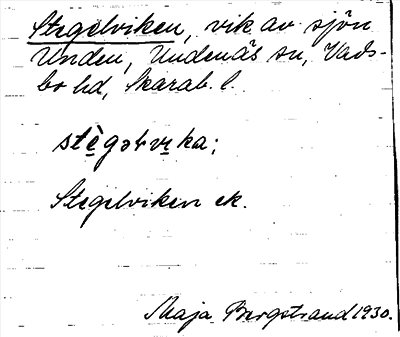 Stegelviken, vik av sjön
Unden, Undenäs sn, Vads-
bo hd, Skarab. l.
stègəlvɩka;
Stegelviken ek.
Maja Bergstrand 1930.